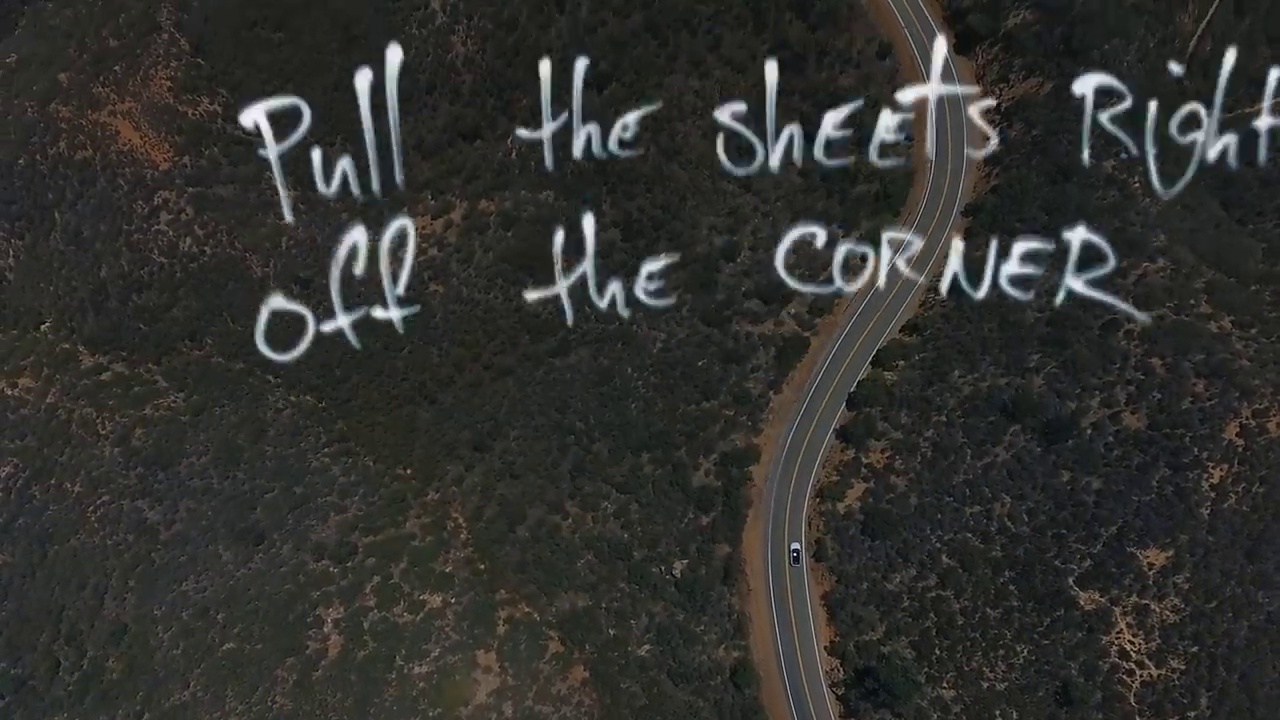 Pull the sheets Right
off the CORNER